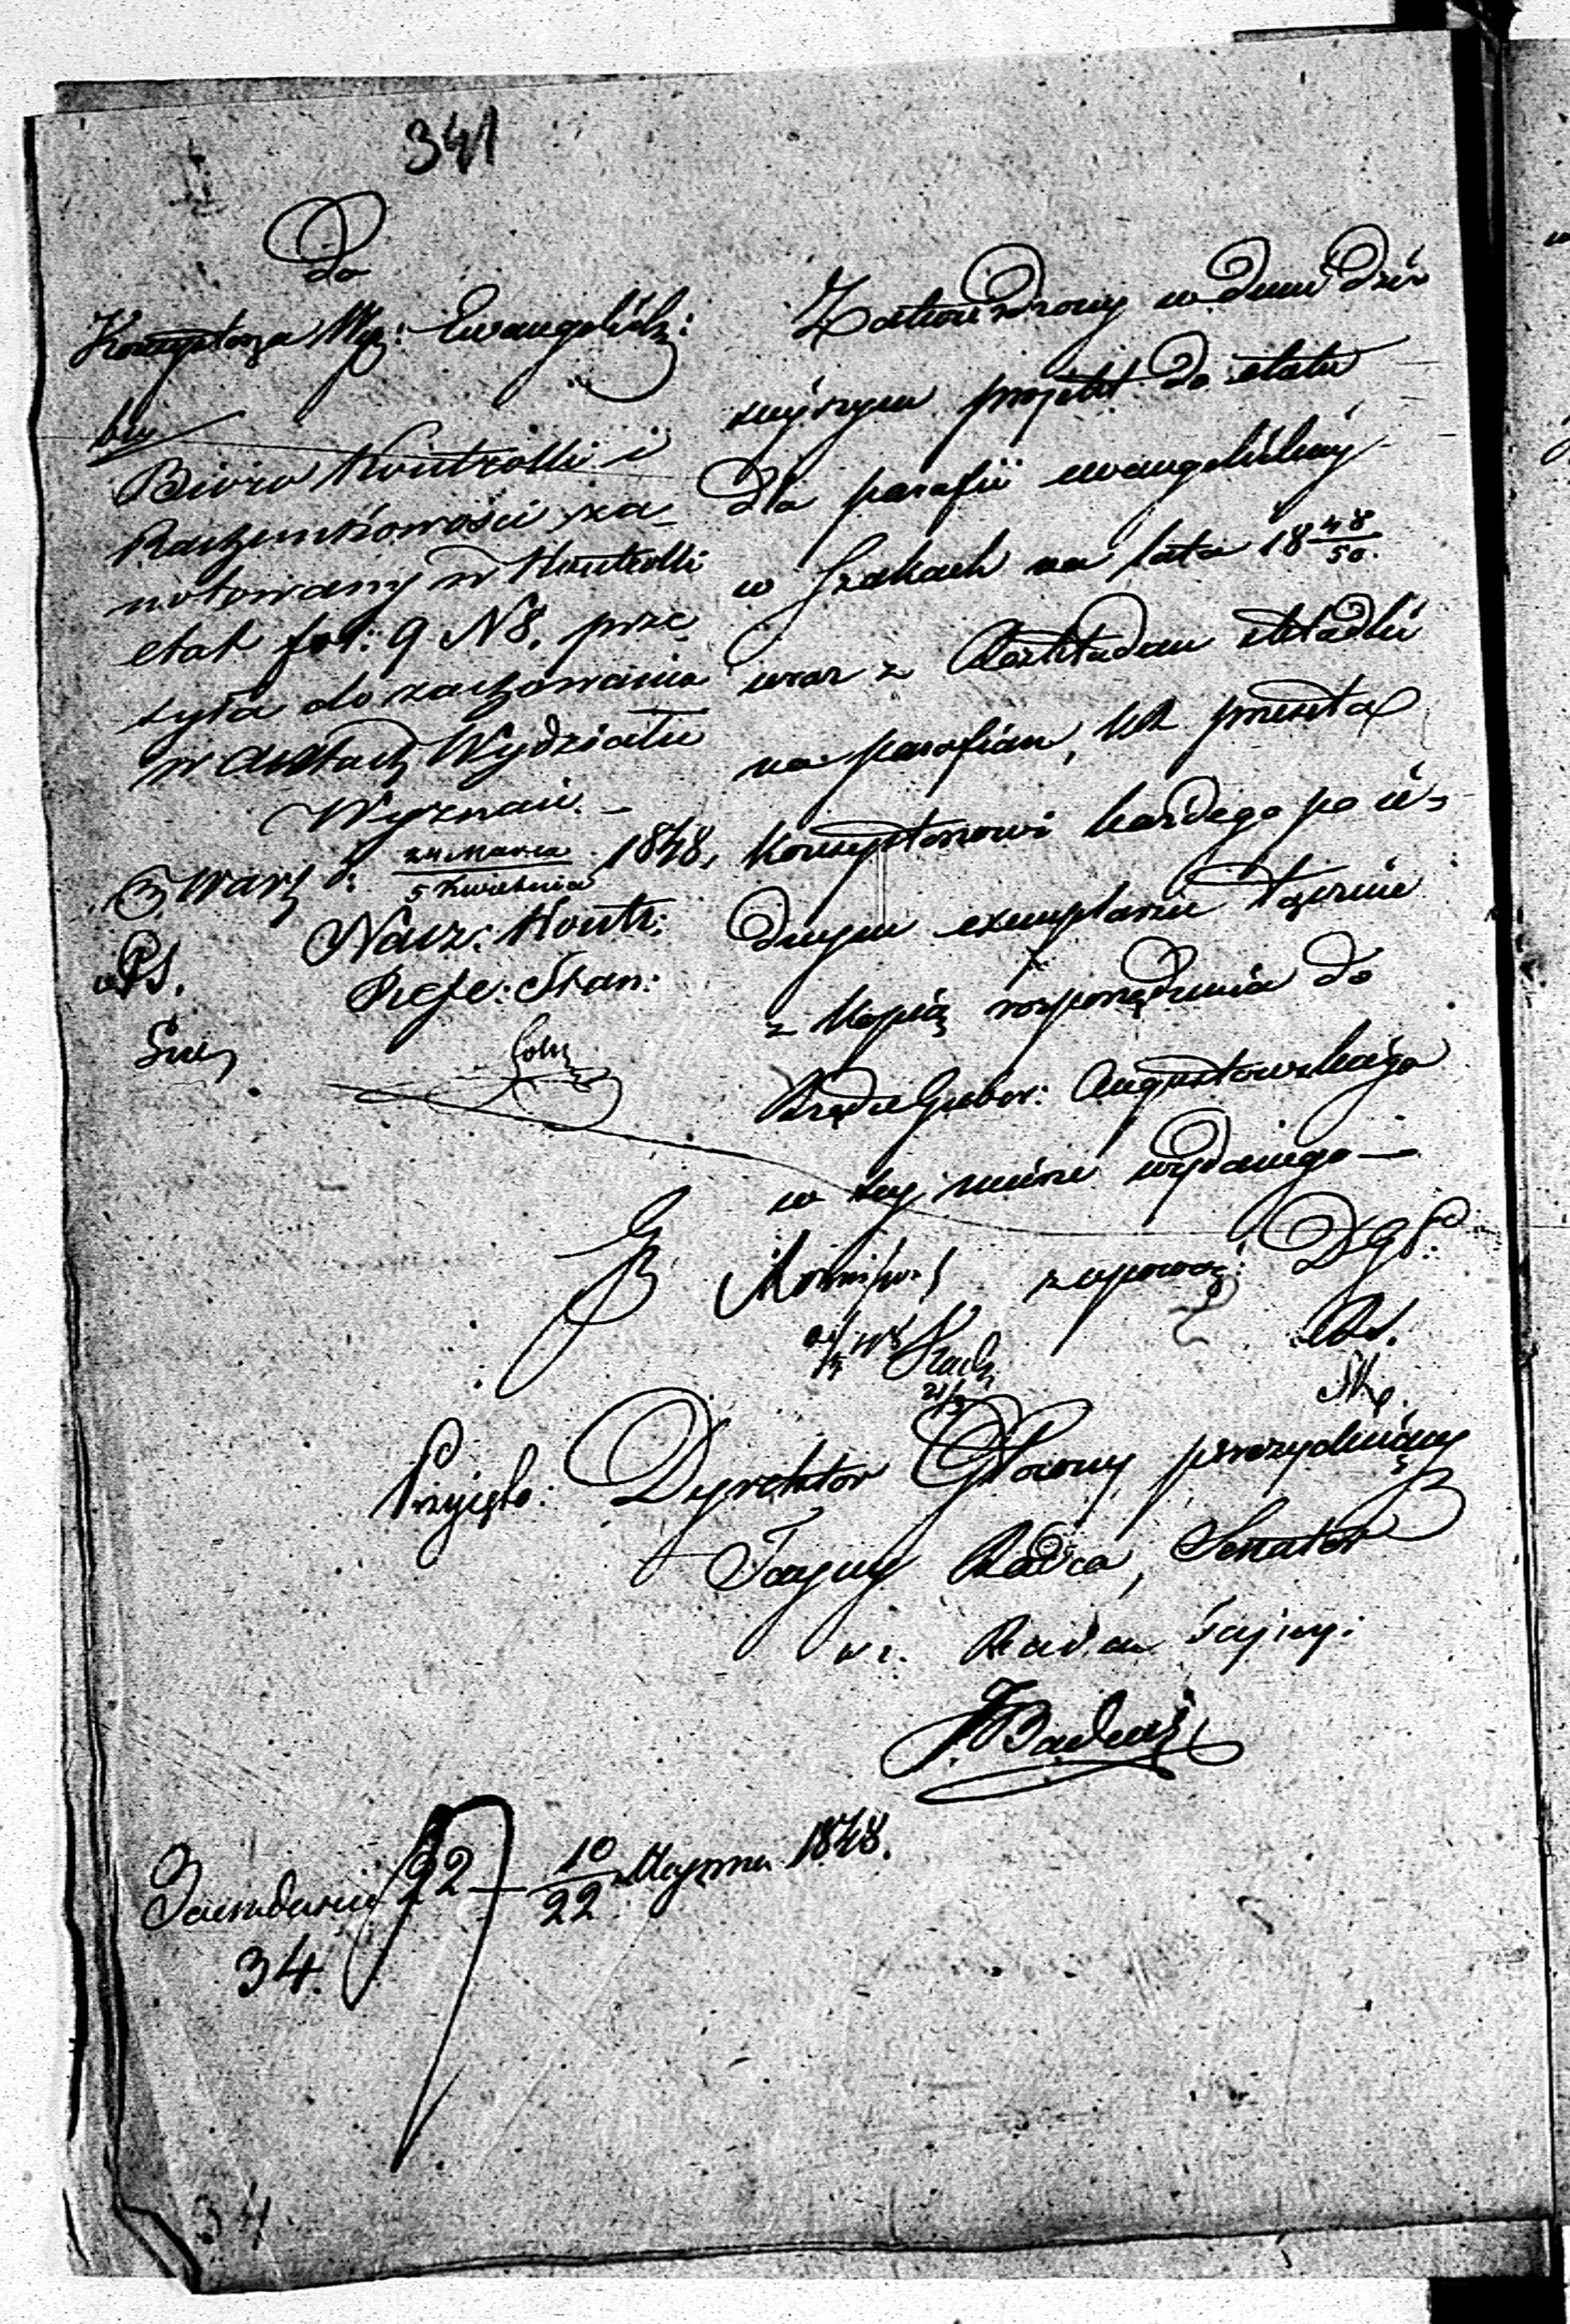 341
Do
Konsystorza Wyz: Ewangelickiego:
Biuro Kontrolli i
Rachunkowości za-
notowany w Kontrolli
etat fol: 9 N 8. prze
syła do zachowania
w Aktach Wydziału
Wyznań. -
Warsz d: 24 Marca / 5 Kwietnia 1848.
Nacz: Kontr:
Refe: Stan:
Zatwierdzony w dniu dzi
siejszym projekt do etatu
dla parafii ewangelickiej
w Szakach na lata 18 48/50.
wraz z Rozkładem składki
na parafian, KR przesyła
Konsystorzowi każdego po je-
dnym exemplarzu łącznie
z kopią rozporządzenia do
Rządu Guber: Augustowskiego
w tej mierze wydanego —
z upoważ: DGP.
Przyjęto: Dyrektor Główny prezydujący
Tajny Radca, Senator
w z. Radca Tajny:
22 — 10/22 Stycznia 1848.
34.
34